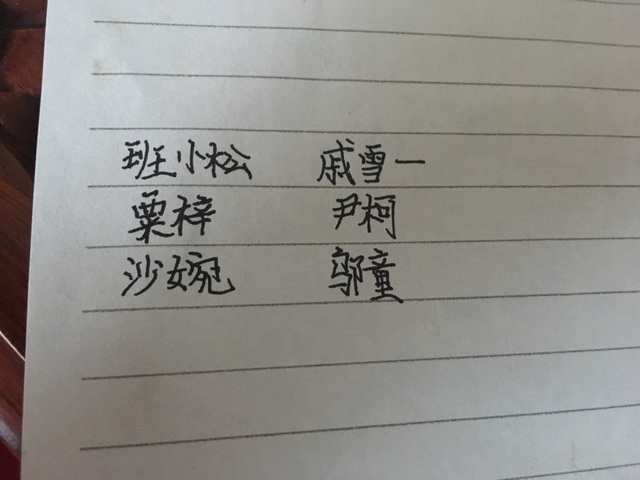 班小松 戚雪一
粟梓 尹柯
沙婉 邬童